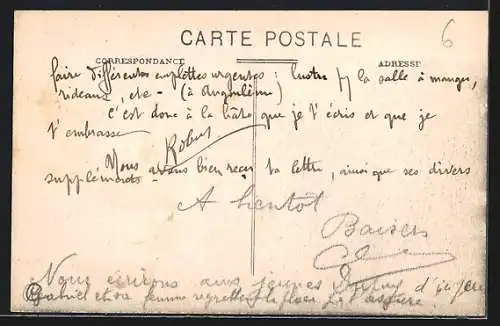 CARTE POSTALE
6
CORRESPONDANCE
ADRESSE
faire différentes emplettes urgentes : lustre pr la salle à manger,
rideaux, etc - (à Angoulême)
c'est donc à la hâte que je t'écris et que je
t'embrasse
Robert
Nous avons bien reçu ta lettre, ainsi que ses divers
suppléments -
A bientôt
Baisers
Nous écrirons aux jeunes d'ici peu
Gabriel et sa femme regrettent